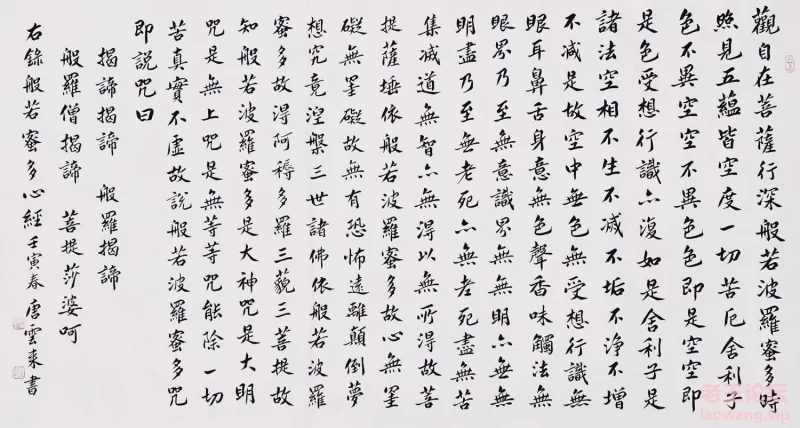 觀自在菩薩行深般若波羅蜜多時
照見五蘊皆空度一切苦厄舍利子
色不異空空不異色色即是空空即
是色受想行識亦復如是舍利子是
諸法空相不生不滅不垢不淨不增
不減是故空中無色無受想行識無
眼耳鼻舌身意無色聲香味觸法無
眼界乃至無意識界無無明亦無無
明盡乃至無老死亦無老死盡無苦
集滅道無智亦無得以無所得故菩
提薩埵依般若波羅蜜多故心無罣
礙無罣礙故無有恐怖遠離顛倒夢
想究竟涅槃三世諸佛依般若波羅
蜜多故得阿耨多羅三藐三菩提故
知般若波羅蜜多是大神咒是大明
咒是無上咒是無等等咒能除一切
苦真實不虛故說般若波羅蜜多咒
即說咒曰
揭諦揭諦 般羅揭諦
般羅僧揭諦 菩提莎婆呵
右錄般若蜜多心經壬寅春唐雲來書
老王论坛
laowang.vip